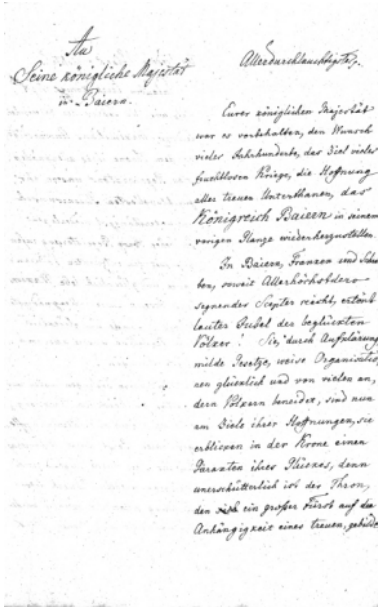 An
Seine königliche Majestät
in Baiern.
Allerdurchlauchtigster,
Eurer königlichen Majestät
war es vorbehalten, den Wunsch
vieler Jahrhunderte, das Ziel vieler
fruchtlosen Kriege, die Hoffnung
aller treuen Unterthanen, das
Königreich Baiern in seinem
vorigen Glanze wiederherzustellen.
In Baiern, Franken und Schwa
ben, soweit Allerhöchstdero
segnender Scepter reicht, ertönt
lauter Jubel der beglückten
Völker! Sie, durch Aufklärung,
milde Gesetze, weise Organisatio
nen glücklich und von vielen an,
dern Völkern beneidet, sind nun
am Ziele ihrer Hoffnungen, sie
erblicken in der Krone einen
Garanten ihres Glückes, denn
unerschütterlich ist der Thron,
den sich ein großer Fürst auf die
Anhängigkeit eines treuen, gebilde